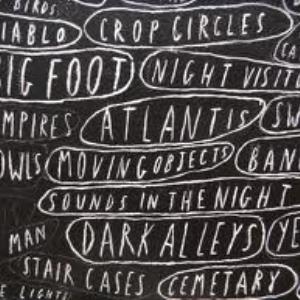 BIRDS.
IABLO CROP CIRCLES
IG FOOT NIGHT VISIT
MPIRES ATLANTIS SW
OWLS MOVING OBJECTS BAN
SOUNDS IN THE NIGHT
MAN DARK ALLEYS YE
STAIR CASES CEMETARY
E LIGHTS